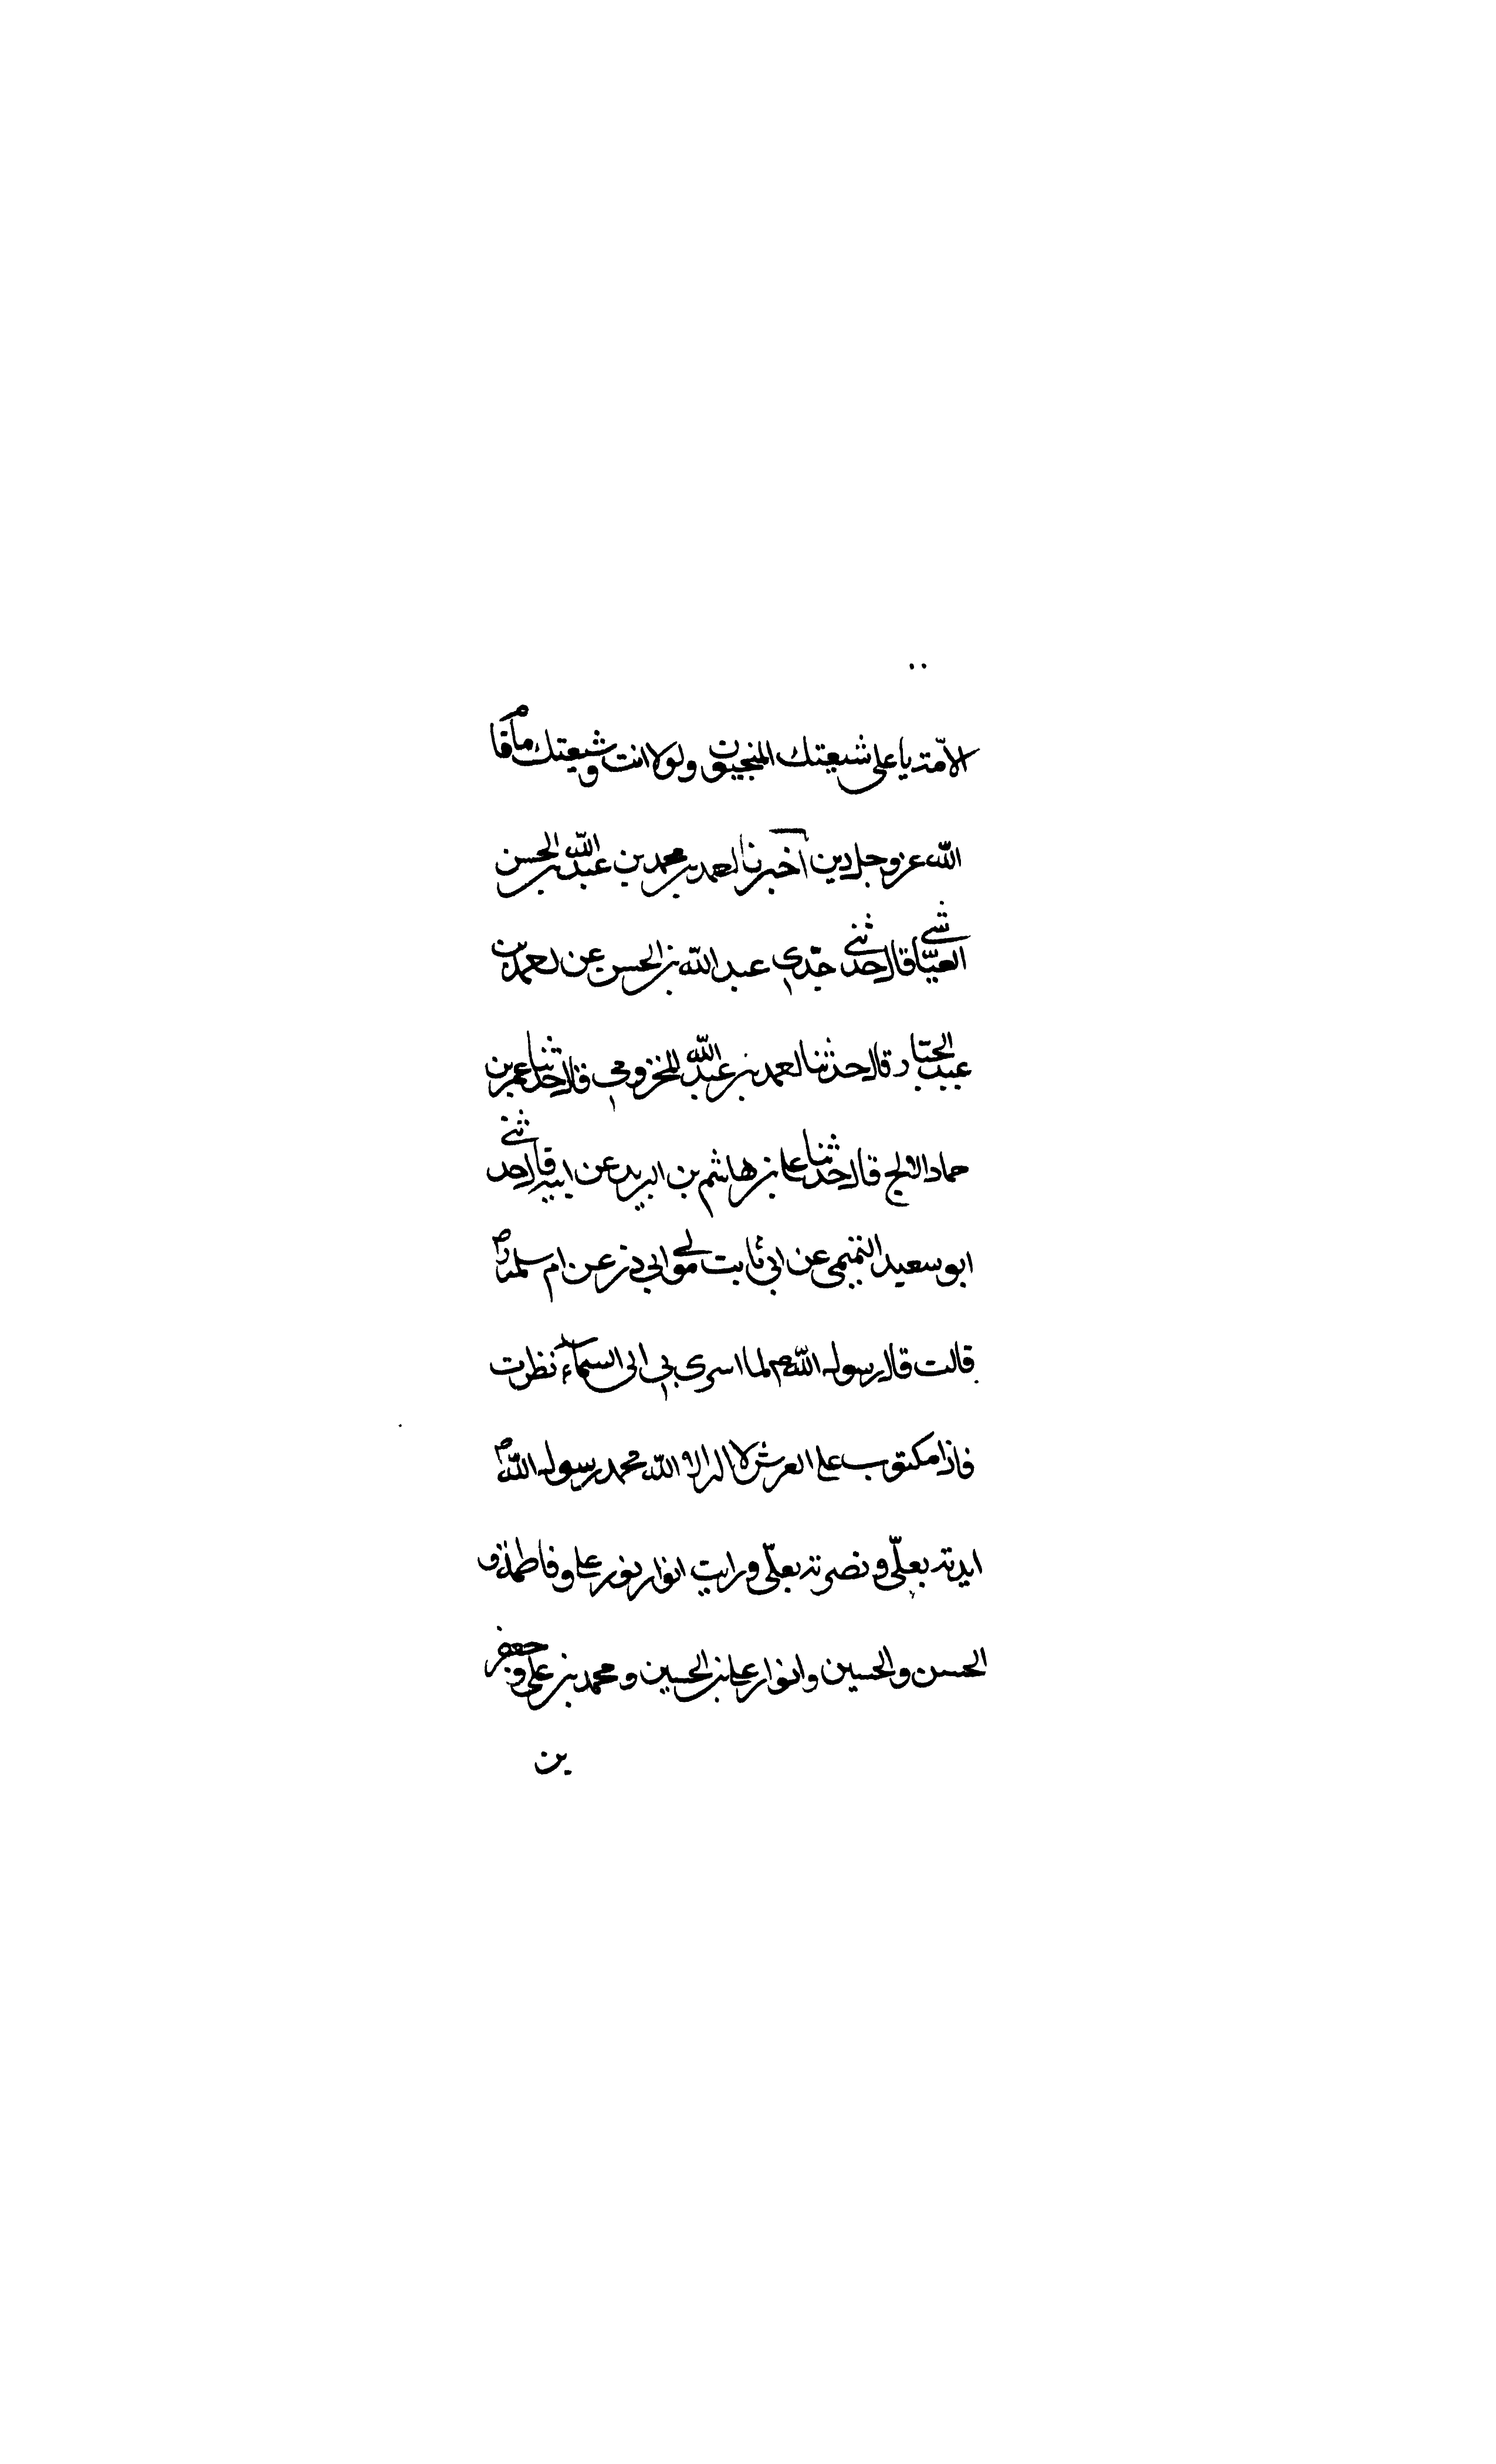 الامّة يا علي شيعتك المنجيون ولولا انت وشيعتك ما قام
الله عز وجل دين اخبرنا احمد بن محمد بن عبد الله بن الحسن
العيّاشي قال حدثني جدّي عبد الله بن الحسن عن احمد بن
عبد الجبّار قال حدثنا احمد بن عبد الله المخزومي قال حدثنا عمر بن
حماد الابح قال حدثنا علي بن هاشم بن البريد عن ابيه قال حدثني
ابو سعيد التميمي عن ابي ثابت مولى ابي ذر عن ام سلمة
قالت قال رسول الله ص لما اسري بي الى السماء نظرت
فاذا مكتوب على العرش لا اله الا الله محمد رسول الله
ايدته بعليّ ونصرته بعليّ ورايت انوار نور علي وفاطمة و
الحسن والحسين وانوار علي بن الحسين ومحمد بن علي وجعفر
بن